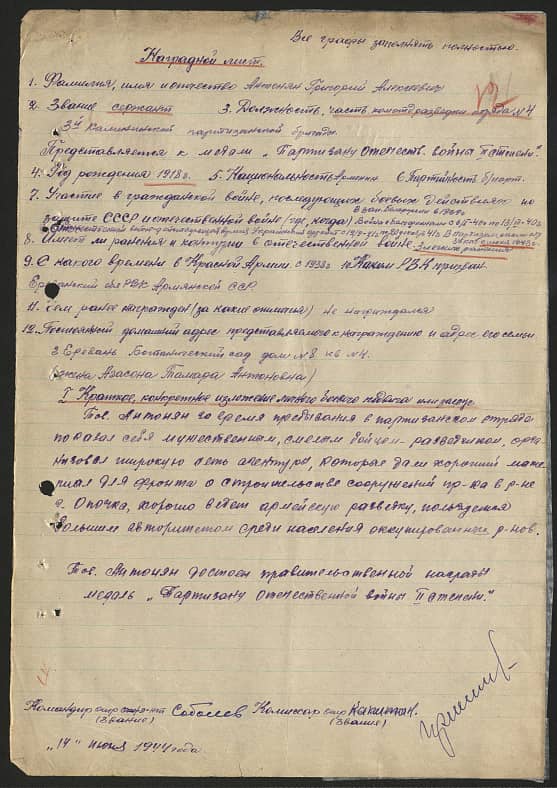 Все графы заполнять полностью.
Наградной лист.
1. Фамилия, имя и отчество Антонян Григорий Алексеевич
2. Звание сержант 3. Должность, часть отряда №4
3й Калининской партизанской бригады.
Представляется к медали „Партизану Отечеств. войны II степени".
4. Год рождения 1918 г. 5. Национальность армянин 6. Партийность б/парт.
7. Участие в гражданской войне, последующих боевых действиях по
защите СССР и отечественной войне (где, когда)
8. Имеет ли ранения и контузии в отечественной войне
9. С какого времени в Красной Армии с 1938 г. 10. Каким РВК призван
Ереванский РВК Армянской ССР
11. Чем ранее награжден (за какие отличия) не награждался
12. Постоянный домашний адрес представляемого к награждению и адрес его семьи
г. Еревань Ботанический сад дом №8 кв №4.
(жена Тамара Антоновна)
I Краткое, конкретное изложение личного боевого подвига или заслуг
Тов. Антонян за время пребывания в партизанском отряде
показал себя мужественным, смелым бойцом-разведчиком, орга-
низовал широкую сеть агентуры, которая дали хороший мате-
риал для фронта о строительстве сооружений пр-ка в р-не
г. Опочка, хорошо ведет армейскую разведку, пользуется
большим авторитетом среди населения оккупированных р-нов.
Тов. Антонян достоен правительственной награды
медаль „Партизану Отечественной войны II степени."
Командир отр Соболев Комиссар отр
(звание) (звание)
„14" июня 1944 года